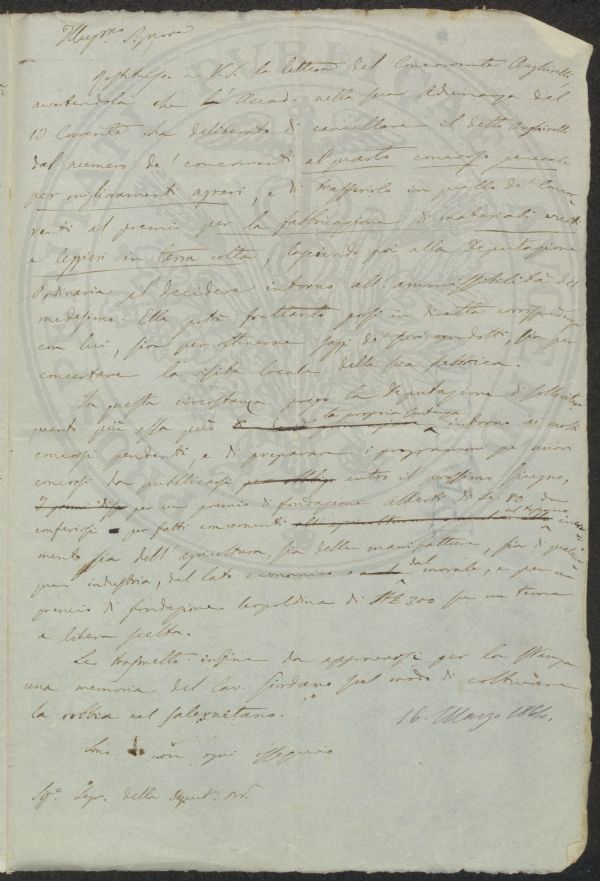 Illmo. Signore
Restituisco a V. S. la lettera del Concorrente Anghirelli
avvertendola che l'Accad. nella sua Adunanza del
13 Corrente ha deliberato di cancellare il detto Anghirelli
dal numero de' concorrenti al quarto concorso generale
per miglioramenti agrari, e di trasferirlo in quello de' Concor-
renti al premio per la fabbricazione di materiali vuoti
e leggieri in terra cotta, lasciando poi alla Deputazione
Ordinaria il decidere intorno all'ammissibilità del
medesimo. Ella potrà frattanto porsi in diretta corrispondenza
con lui, sia per ottenerne saggi de' suoi prodotti, sia per
concertare la visita locale della sua fabbrica.
In questa circostanza prego la Deputazione di sollecitare
quanto più essa può la propria sentenza intorno ai molti
concorsi pendenti, e di preparare i programmi pe' nuovi
concorsi da pubblicarsi entro il prossimo Giugno,
per un premio di fondazione Alberti di Lre 80 da
conferirsi per fatti concernenti
mento sia dell'agricoltura, sia delle manifatture, sia di qualun-
que industria, dal lato economico e dal morale, e per un
premio di fondazione Leopoldina di 300 su un tema
a libera scelta.
Le trasmetto infine da approvarsi per la stampa
una memoria del Cav. Giordano sul modo di coltivare
la robbia nel Salernitano.
16. Marzo 1864.
Sono con ogni ossequio
Sigr. Segr. della Deput. Ord.